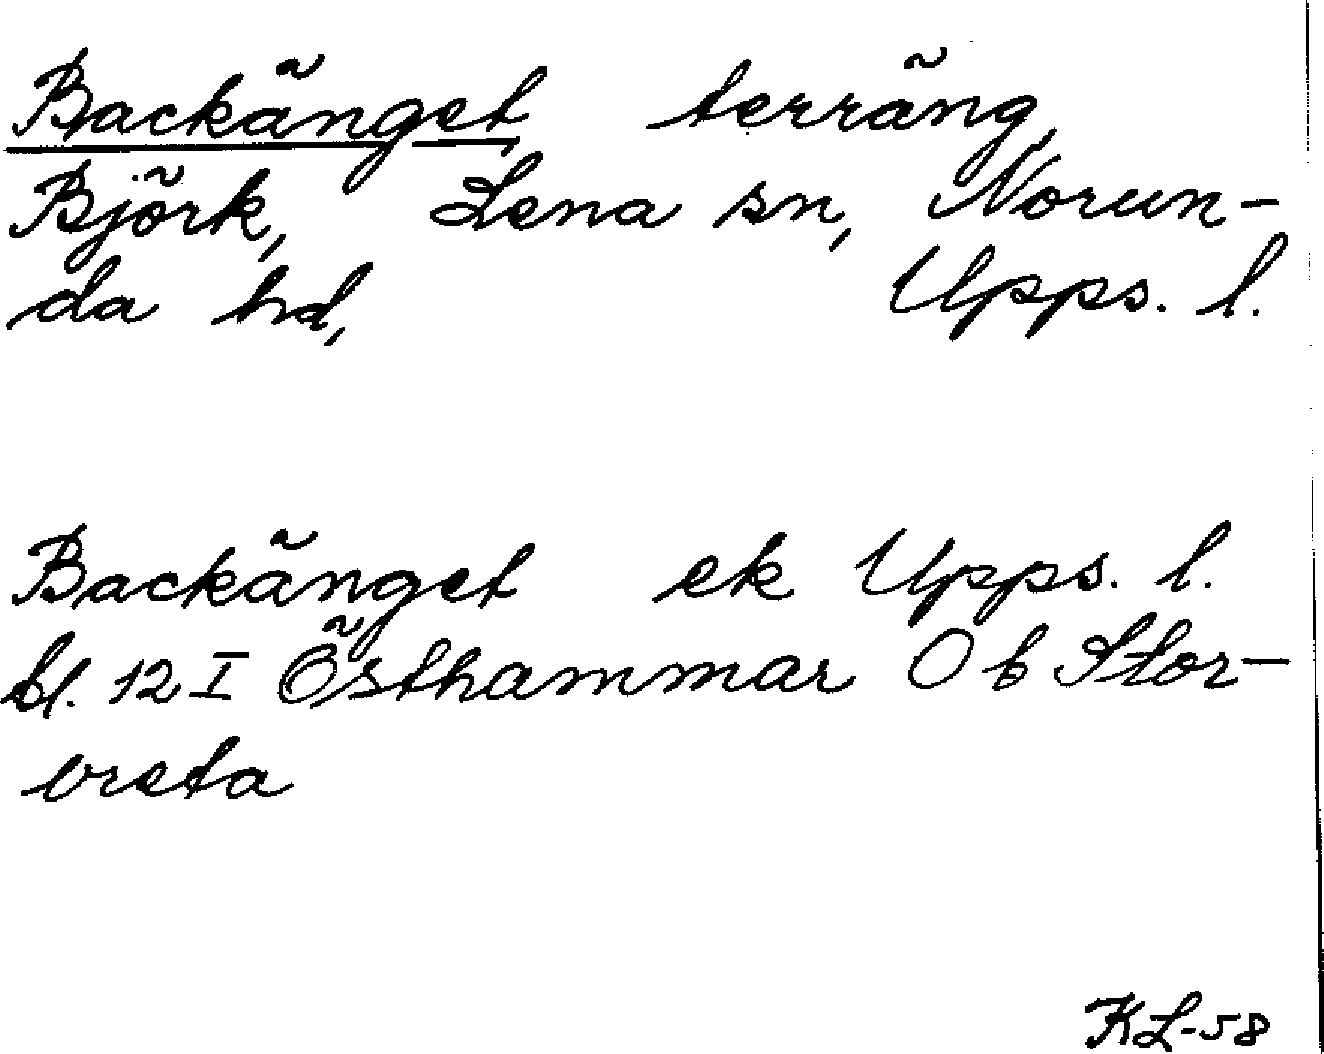 Backänget terräng,
Björk, Lena sn, Norun-
da hd, Upps. l.
Backänget ek Upps. l.
bl. 12 I Östhammar O b Stor-
vreta
KL-58